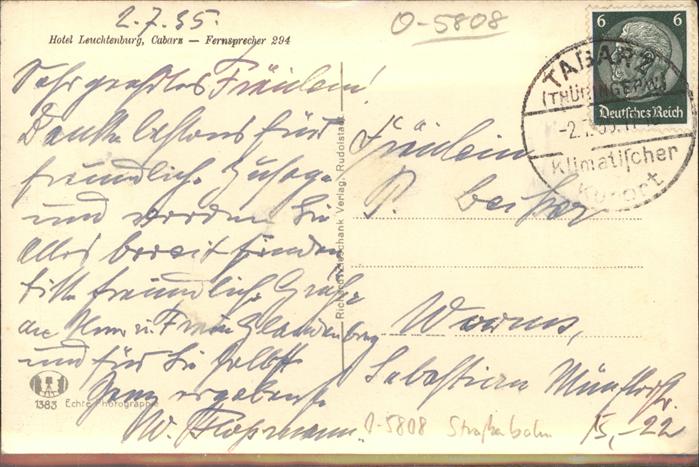 2.7.35.
O-5808
Hotel Leuchtenburg, Cabarz — Fernsprecher 294
6 6
Deutsches Reich
TABARZ
(THÜRINGERW.)
-2.7.35.
Klimatischer
Kurort
Sehr geehrtes Fräulein!
Danke bestens für
freundliche Zusage
und werden Sie
alles bereit finden
bitte freundliche Grüße
an Herrn u. Frau
und für Sie selbst
Ganz ergebenst
W.
Fräulein
P.
Worms,
Sebastian Münsterstr.
Verlag, Rudolstadt
1383 Echte Photographie
O-5808 Straßenbahn 15,-22